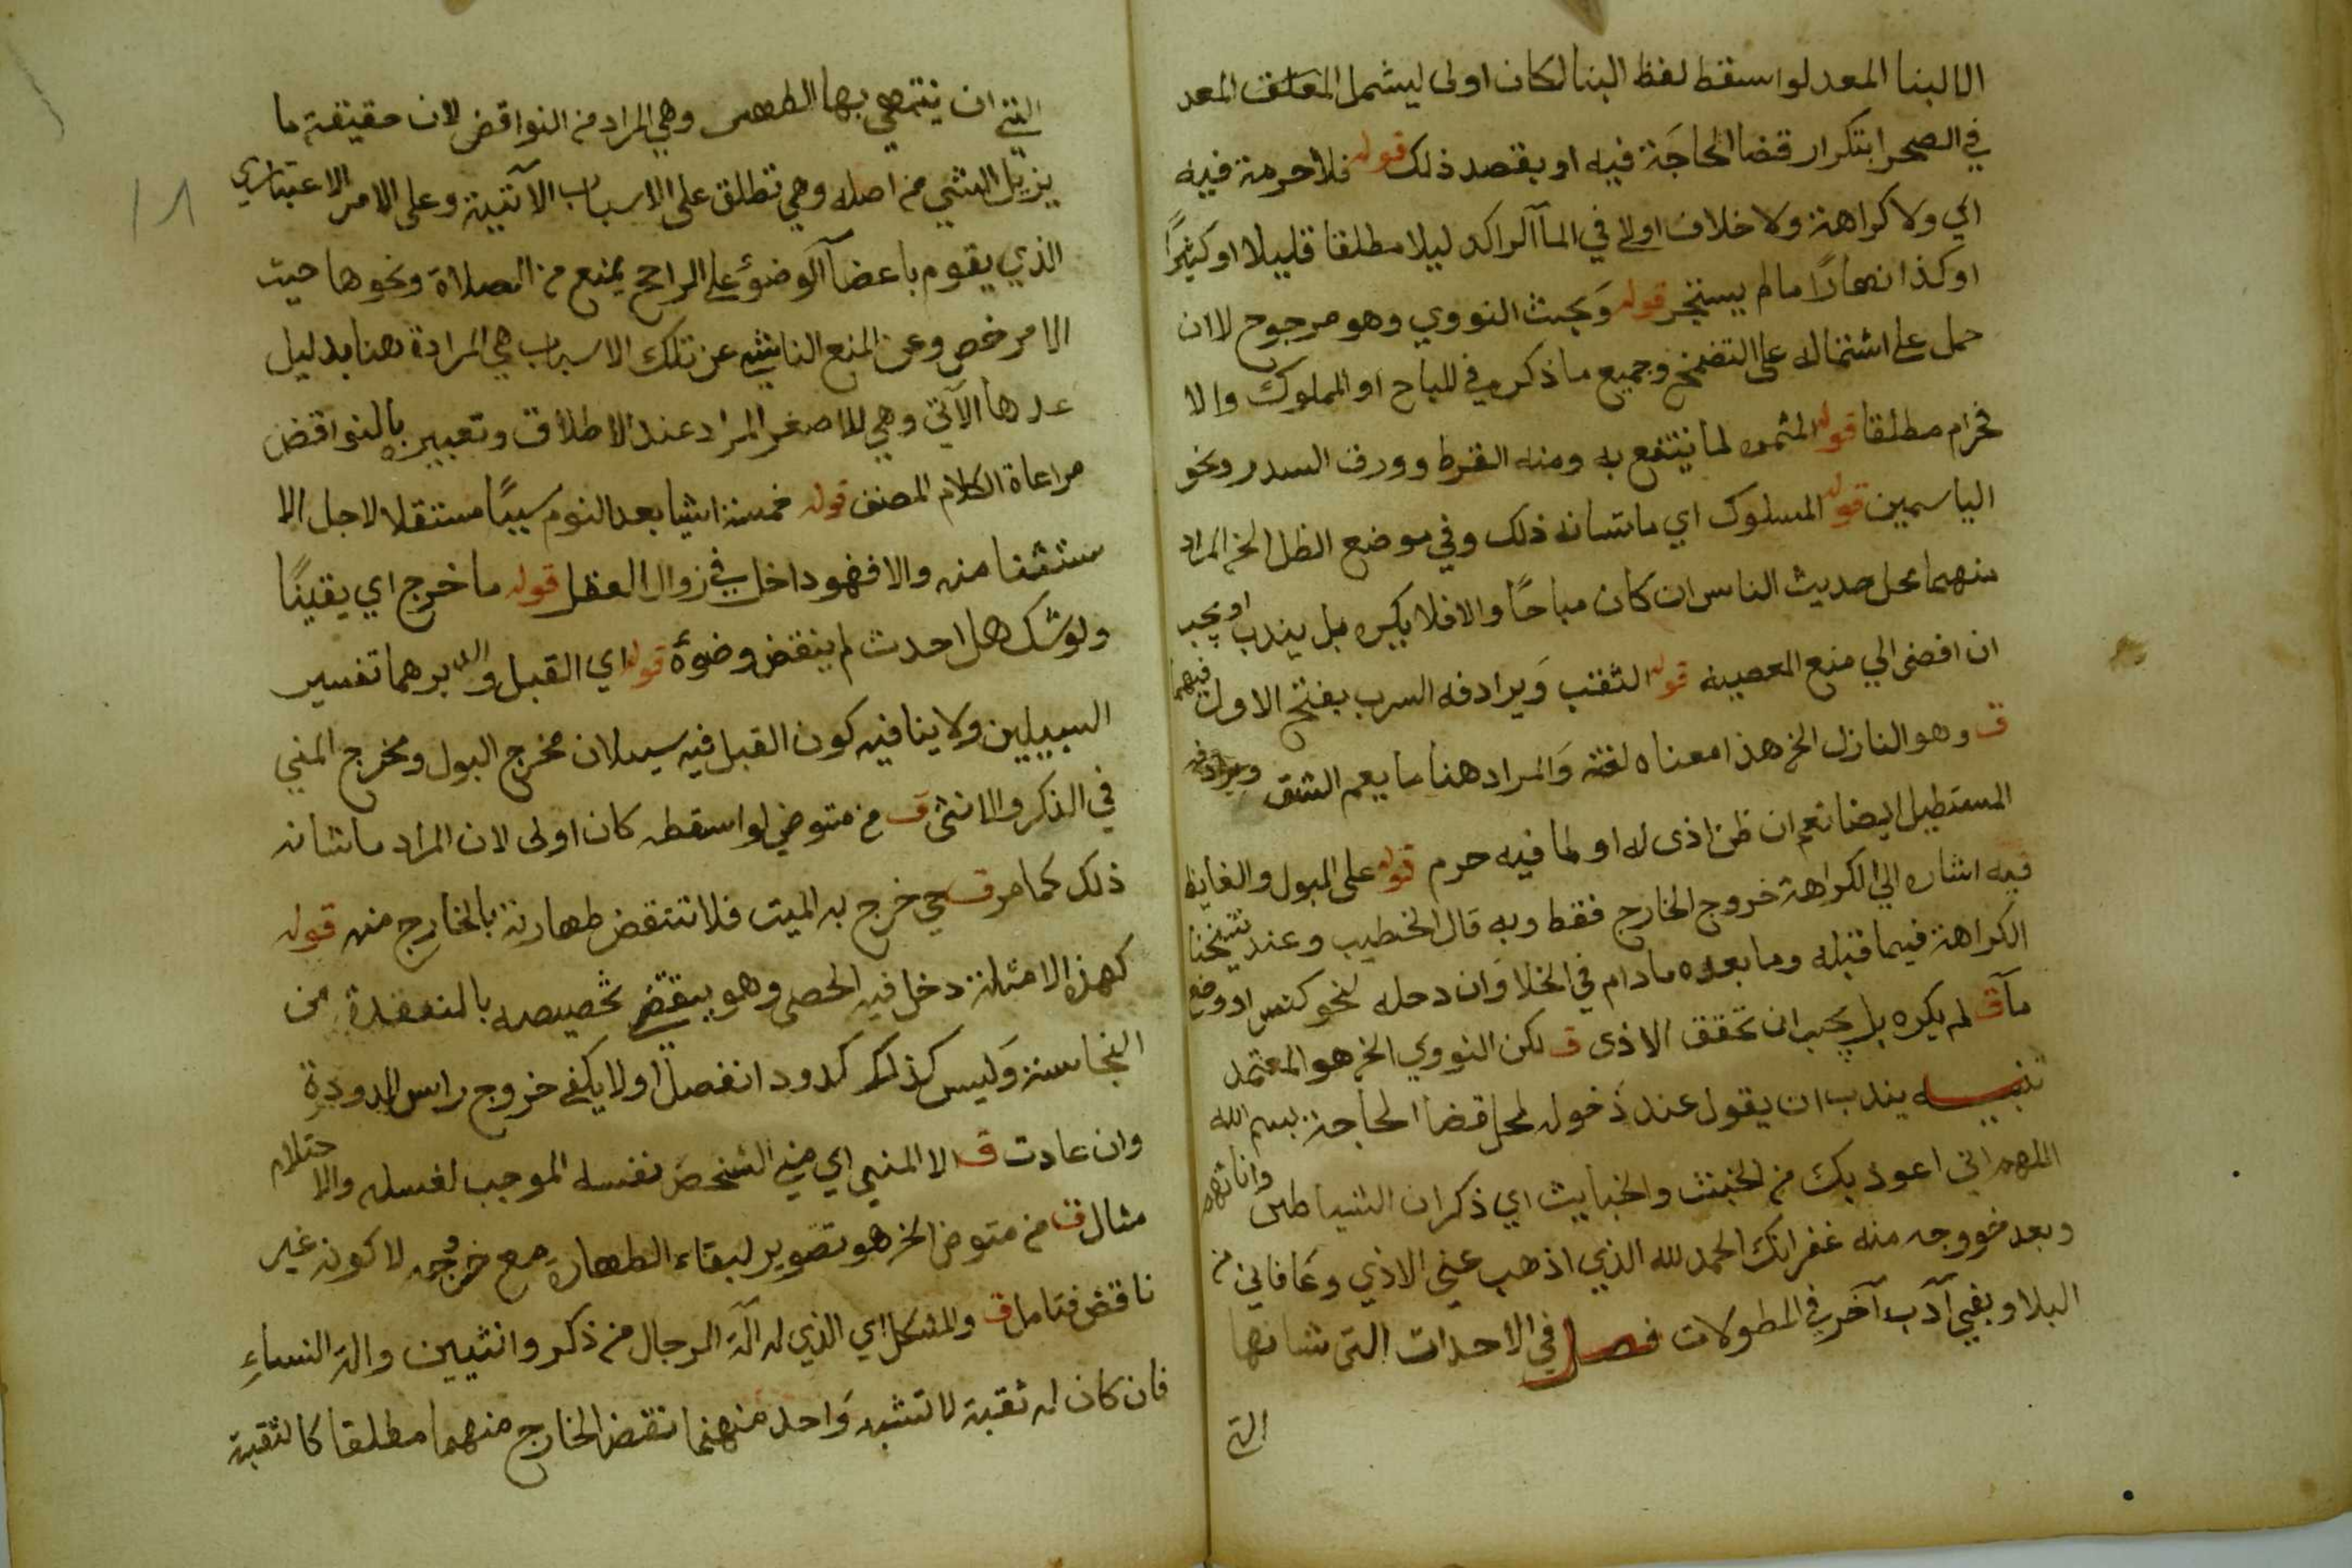 الا البنا المعد لو اسقط لفظ البنا لكان اولى ليشمل المعد
في الصحرا بتكرار قضا الحاجة فيه او بقصد ذلك قوله فلا حرمة فيه
اي ولا كراهة ولا خلاف اولى في المآ الراكد ليلا مطلقا قليلا او كثيرًا
او كذا نهارًا ما لم يستبحر قوله وبحث النووي وهو مرجوح لا ان
حمل على اشتماله على التضمخ وجميع ما ذكر في المباح او المملوك والا
فحرام مطلقا قوله المثمره لما ينتفع به ومنه القرط وورق السدر ونحو
الياسمين قوله المسلوك اي ما شانه ذلك وفي موضع الظل الخ المراد
منهما محل حديث الناس ان كان مباحًا والا فلا يكره بل يندب او يجب
ان افضى الي منع المعصية قوله الثقب ويرادفه السرب بفتح الاول فيهما
ق وهو النازل الخ هذا معناه لغة والمراد هنا ما يعم الشق
المستطيل ايضا نعم ان ظن اذى له او لما فيه حرم قوله على البول والغايط
فيه اشاره الي الكراهة خروج الخارج فقط وبه قال الخطيب وعند شيخنا
الكراهة فيما قبله وما بعده ما دام في الخلا وان دخله لنحو كنس او وضع
مآ ق لم يكره بل يجب ان تحقق الاذى ق لكن النووي الخ هو المعتمد
تنبيه يندب ان يقول عند دخوله لمحل قضا الحاجة بسم الله
اللهم اني اعوذ بك من الخبث والخبايث اي ذكران الشياطين واناثهم
وبعد خروجه منه غفرانك الحمد لله الذي اذهب عني الاذي وعافاني من
البلا وبقي آداب آخر في المطولات فصل في الاحداث التى شانها
التى
التي ان ينتهي بها الطهر وهي المراد من النواقض لان حقيقة ما
يزيل الشي من اصله وهي تطلق على الاسباب الآتية وعلى الامر الاعتباري
الذي يقوم باعضآ الوضوء على الراجح يمنع من الصلاة ونحوها حيث
لا مرخص وعن المنع الناشي عن تلك الاسباب هي المرادة هنا بدليل
عدها الآتي وهي للاصغر المراد عند الاطلاق وتعبيره بالنواقض
مراعاة الكلام المصنف قوله خمسة اشيا بعد النوم سببًا مستقلا لاجل الا
ستثنا منه والا فهو داخل في زوال العقل قوله ما خرج اي يقينًا
ولو شك هل احدث لم ينقض وضوءه قوله اي القبل والدبر هما تفسير
السبيلين ولا ينافيه كون القبل فيه سبيلان مخرج البول ومخرج المني
في الذكر والانثى ق من متوضي لو اسقطه كان اولى لان المراد ما شانه
ذلك كما مر ق حي خرج به الميت فلا تنتقض طهارته بالخارج منه قوله
كهذه الامثلة دخل فيه الحصى وهو يقتضي تخصيصه بالمنعقدة من
النجاسة وليس كذلك كدود انفصل اولا يكفي خروج راس الدودة
وان عادت ق الا المني اي مني الشخص نفسه الموجب لغسله والاحتلام
مثال ق من متوض الخ هو تصوير لبقاء الطهاره مع خروجه لا كونه غير
ناقض فتامل ق والمشكل اي الذي له آلة الرجال من ذكر وانثيين والة النساء
فان كان له ثقبة لا تشبه واحد منهما نقض الخارج منهما مطلقا كالثقبة